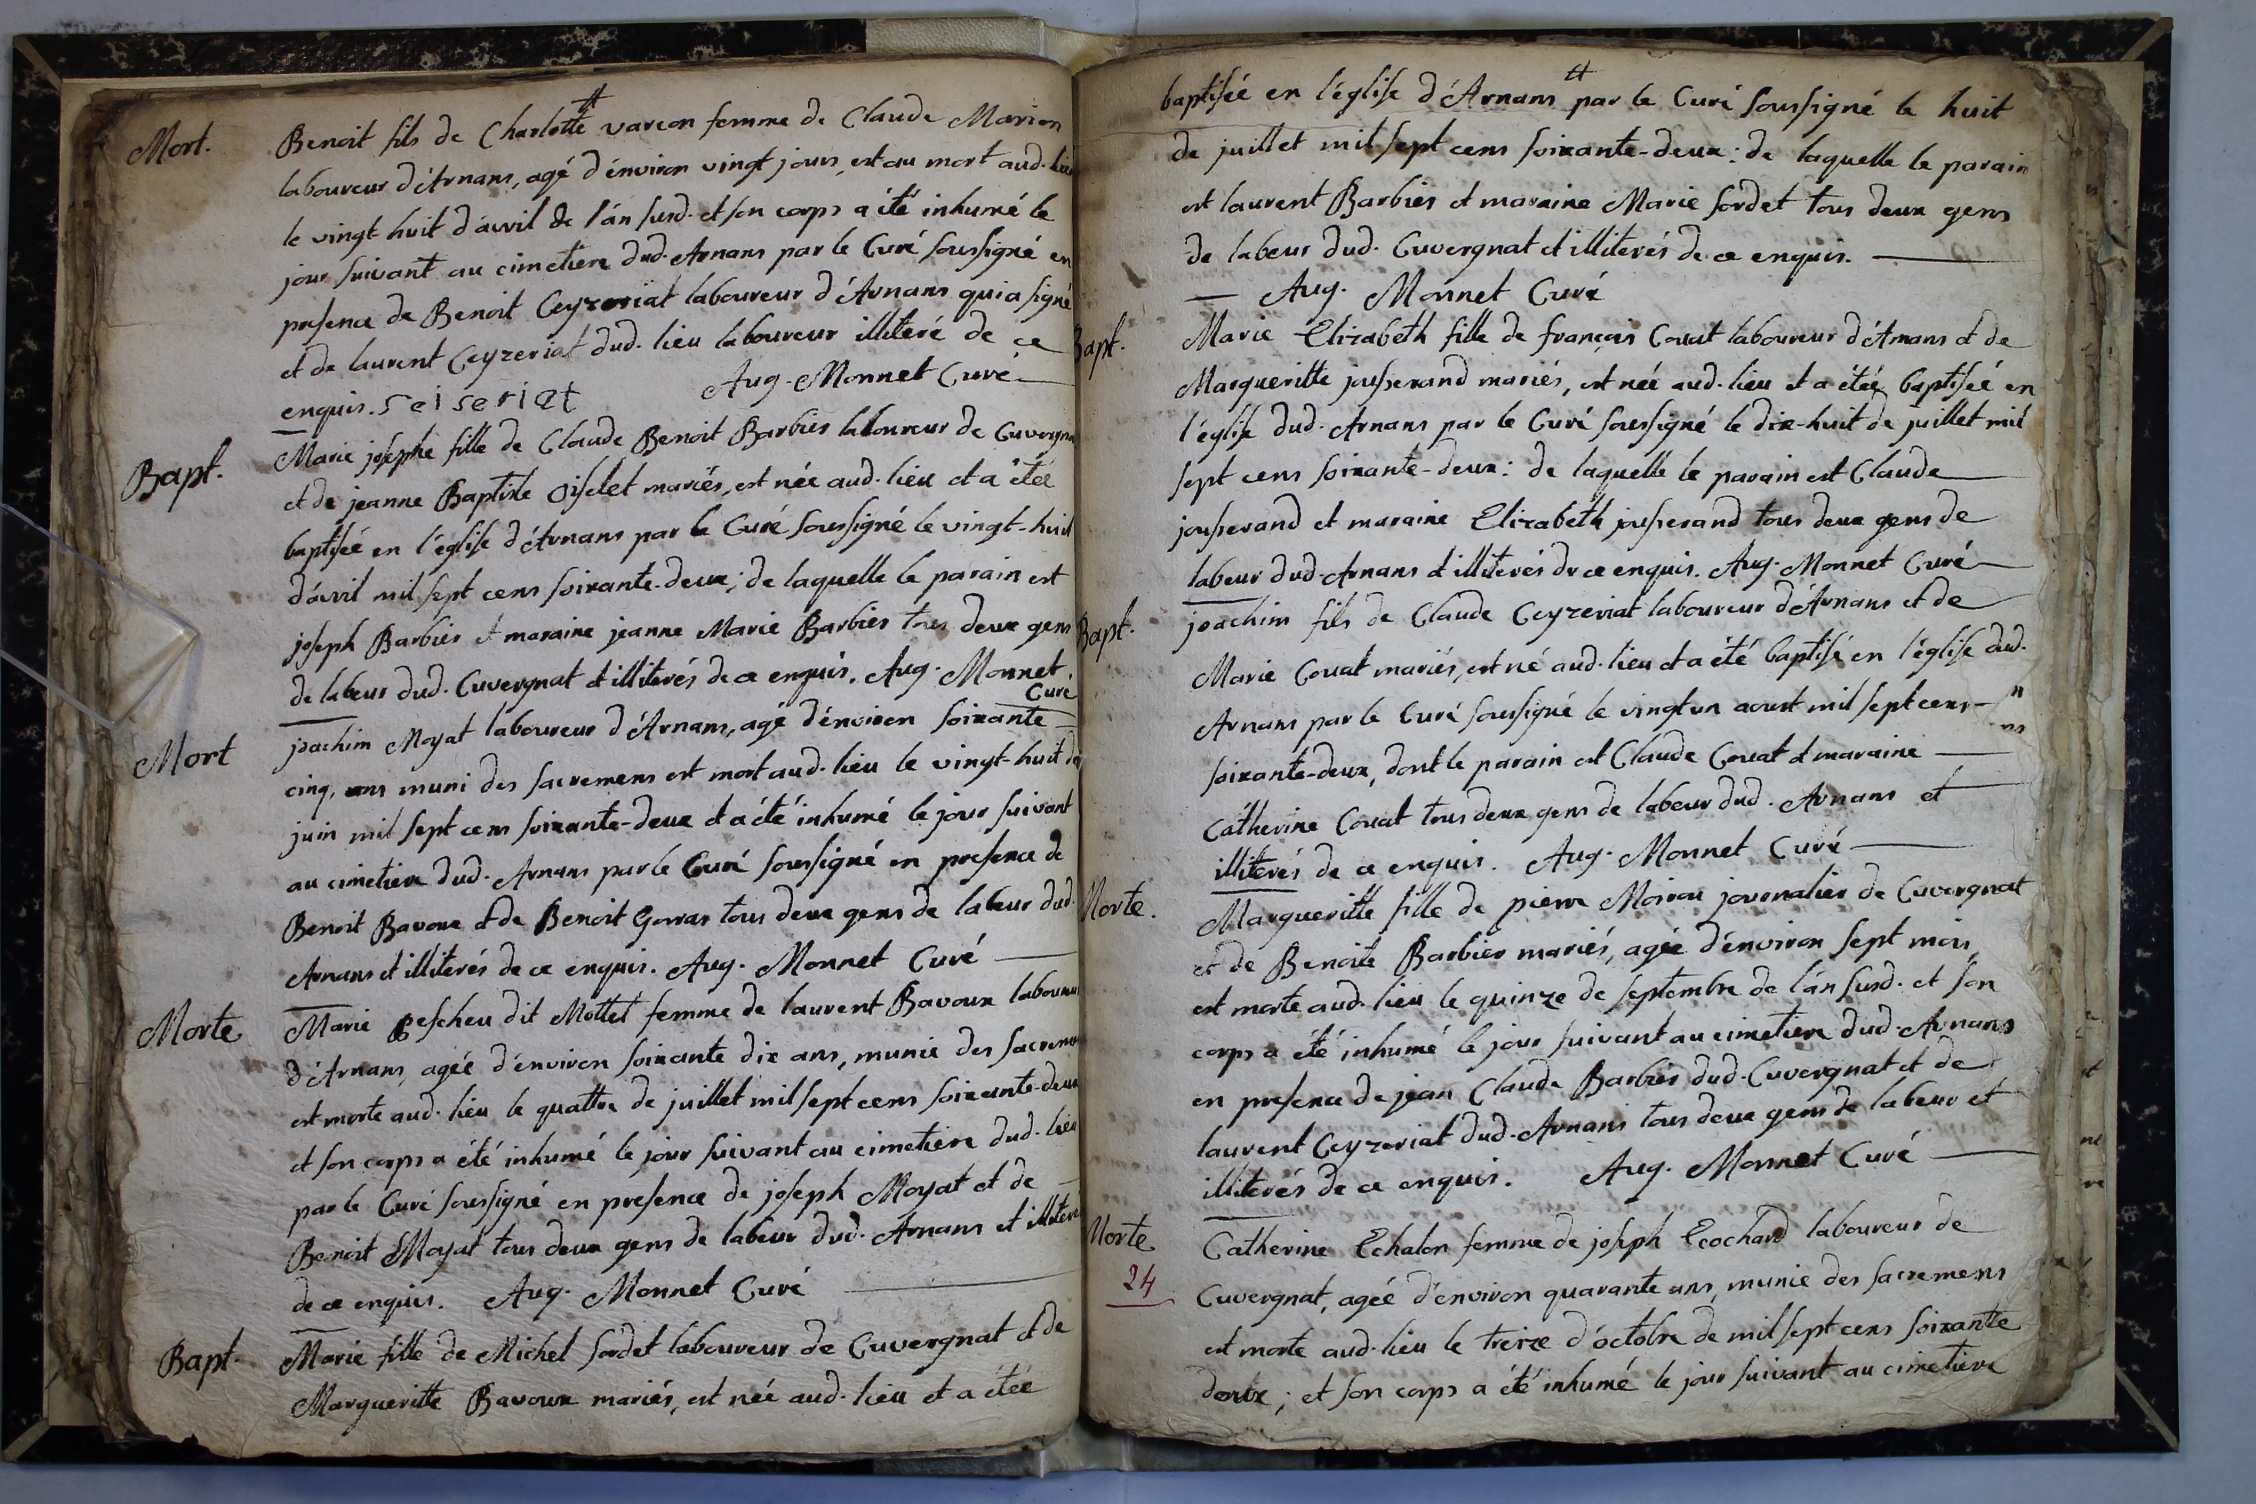 Mort.
Benoit fils de Charlotte varcon femme de Claude Marion
laboureur d'Arnans, agé d'environ vingt jours, est au mort aud. lieu
le vingt huit d'avril de l'an susd. et son corps a été inhumé le
jour suivant au cimetiere dud. Arnans par le Curé soussigné en
presence de Benoit Ceyzeriat laboureur d'Arnans qui a signé
et de laurent Ceyzeriat dud. lieu laboureur illiteré de ce
enquis. seiseriat Aug. Monnet Curé
Bapt.
Marie josephe fille de Claude Benoit Barbier laboureur de Cuvergnat
et de jeanne Baptiste Oiselet mariés, est née aud. lieu et a étée
baptisée en l'église d'Arnans par le Curé soussigné le vingt-huit
d'avril mil sept cens soixante-deux; de laquelle le parain est
joseph Barbier et maraine jeanne Marie Barbier tous deux gens
de labeur dud. Cuvergnat et illiterés de ce enquis. Aug. Monnet
Curé
Mort
joachim Moyat laboureur d'Arnans, agé d'environ soixante
cinq, ans muni des sacremens est mort aud. lieu le vingt-huit de
juin mil sept cens soixante-deux et a été inhumé le jour suivant
au cimetiere dud. Arnans par le Curé soussigné en presence de
Benoit Bavoux et de Benoit Gorras tous deux gens de labeur dud.
Arnans et illiterés de ce enquis. Aug. Monnet Curé
Morte
Marie Pescheu dit Mottet femme de laurent Bavoux laboureur
d'Arnans, agée d'environ soixante dix ans, munie des sacremens
est morte aud. lieu le quattre de juillet mil sept cens soixante-deux
et son corps a été inhumé le jour suivant au cimetiere dud. lieu
par le Curé soussigné en presence de joseph Moyat et de
Benoit Moyat tous deux gens de labeur dud. Arnans et illiterés
de ce enquis. Aug. Monnet Curé
Bapt.
Marie fille de Michel Sordet laboureur de Cuvergnat et de
Margueritte Bavoux mariés, est née aud. lieu et a étée
baptisée en l'église d'Arnans par le Curé soussigné le huit
de juillet mil sept cens soixante-deux: de laquelle le parain
est laurent Barbier et maraine Marie Sordet tous deux gens
de labeur dud. Cuvergnat et illiterés de ce enquis.
Aug. Monnet Curé
Bapt.
Marie Elizabeth fille de françois Couat laboureur d'Arnans et de
Margueritte jousserand mariés, est née aud. lieu et a étée baptisée en
l'église dud. Arnans par le Curé soussigné le dix-huit de juillet mil
sept cens soixante-deux: de laquelle le parain est Claude
jousserand et maraine Elizabeth jousserand tous deux gens de
labeur dud. Arnans et illiterés de ce enquis. Aug. Monnet Curé
Bapt.
joachim fils de Claude Ceyzeriat laboureur d'Arnans et de
Marie Couat mariés, est né aud. lieu et a été baptisé en l'église dud.
Arnans par le Curé soussigné le vingt un aoust mil sept cens
soixante-deux, dont le parain est Claude Couat et maraine
Catherine Couat tous deux gens de labeur dud. Arnans et
illiterés de ce enquis. Aug. Monnet Curé
Morte.
Margueritte fille de pierre Moirou journalier de Cuvergnat
et de Benoite Barbier mariés, agée d'environ sept mois
est morte aud. lieu le quinze de septembre de l'an susd. et son
corps a été inhumé le jour suivant au cimetiere dud. Arnans
en presence de jean Claude Barbier dud. Cuvergnat et de
laurent Ceyzeriat dud. Arnans tous deux gens de labeur et
illiterés de ce enquis. Aug. Monnet Curé
Morte
24
Catherine Echalon femme de joseph Ecochard laboureur de
Cuvergnat, agée d'environ quarante ans, munie des sacremens
est morte aud. lieu le treize d'octobre de mil sept cens soixante
deux; et son corps a été inhumé le jour suivant au cimetiere